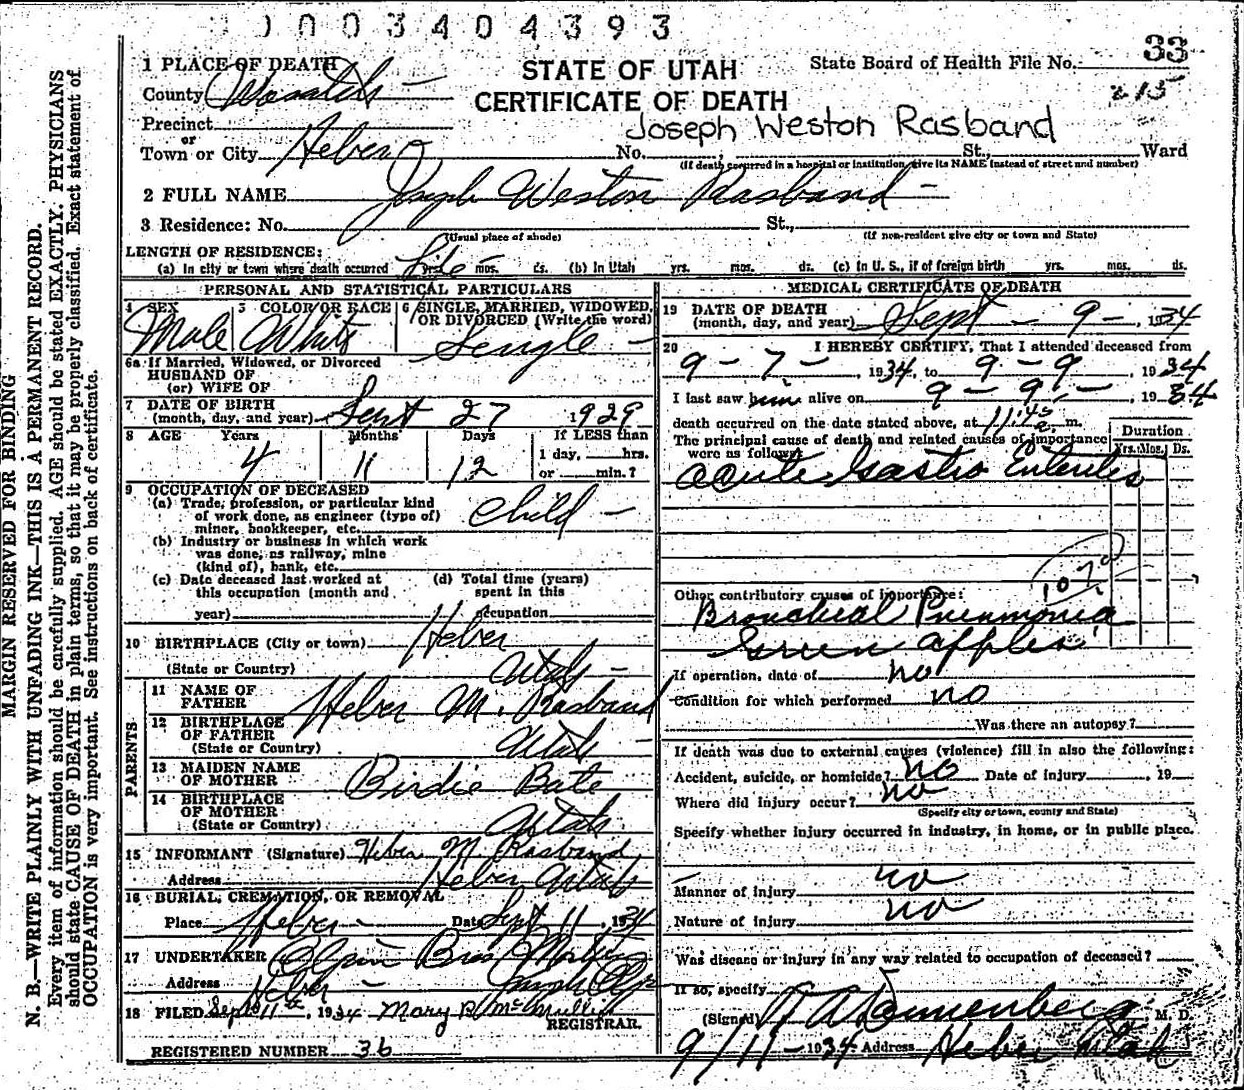 0003404393
33
1 PLACE OF DEATH
STATE OF UTAH
State Board of Health File No.
215
County Wasatch
CERTIFICATE OF DEATH
Precinct
Joseph Weston Rasband
or
Town or City Heber No. , St., Ward
(If death occurred in a hospital or institution, give its NAME instead of street and number)
2 FULL NAME Joseph Weston Rasband
3 Residence: No. St.,
(Usual place of abode) (If non-resident give city or town and State)
LENGTH OF RESIDENCE:
(a) In city or town where death occurred Life yrs. mos. ds. (b) In Utah yrs. mos. ds. (c) In U. S., if of foreign birth yrs. mos. ds.
PERSONAL AND STATISTICAL PARTICULARS
4 SEX 5 COLOR OR RACE 6 SINGLE, MARRIED, WIDOWED, OR DIVORCED (Write the word)
Male White Single
6a If Married, Widowed, or Divorced
HUSBAND OF
(or) WIFE OF
7 DATE OF BIRTH
(month, day, and year) Sept 27 1929
8 AGE Years Months Days If LESS than
4 11 12 1 day, hrs.
or min.?
9 OCCUPATION OF DECEASED
(a) Trade, profession, or particular kind
of work done, as engineer (type of)
miner, bookkeeper, etc. Child
(b) Industry or business in which work
was done, as railway, mine
(kind of), bank, etc.
(c) Date deceased last worked at (d) Total time (years)
this occupation (month and spent in this
year) occupation
10 BIRTHPLACE (City or town) Heber
(State or Country) Utah
PARENTS
11 NAME OF
FATHER Heber M. Rasband
12 BIRTHPLACE
OF FATHER
(State or Country) Utah
13 MAIDEN NAME
OF MOTHER Birdie Bate
14 BIRTHPLACE
OF MOTHER
(State or Country) Utah
15 INFORMANT (Signature) Heber M Rasband
Address Heber Utah
16 BURIAL, CREMATION, OR REMOVAL
Place Heber Date Sept 11, 1934
17 UNDERTAKER Olpin Bros Mortuary
Address Heber
18 FILED Sept 11th, 1934 Mary R. McMullin
REGISTRAR.
REGISTERED NUMBER 36
MEDICAL CERTIFICATE OF DEATH
19 DATE OF DEATH
(month, day, and year) Sept - 9 -, 1934
20 I HEREBY CERTIFY, That I attended deceased from
9 - 7 -, 1934, to 9 - 9, 1934
I last saw him alive on 9 - 9 -, 1934
death occurred on the date stated above, at 11:45 a. m.
The principal cause of death and related causes of importance
were as follows:
Duration
Yrs. Mos. Ds.
Acute Gastro Enterites
107a
Other contributory causes of importance:
Bronchial Pneumonia
Green apples
If operation, date of no
Condition for which performed no
Was there an autopsy?
If death was due to external causes (violence) fill in also the following:
Accident, suicide, or homicide? no Date of injury , 19
Where did injury occur? no
(Specify city or town, county and State)
Specify whether injury occurred in industry, in home, or in public place.
Manner of injury no
Nature of injury no
Was disease or injury in any way related to occupation of deceased?
If so, specify
(Signed) Dannenberg M. D.
9/11 - 1934 Address Heber Utah
MARGIN RESERVED FOR BINDING
N. B.—WRITE PLAINLY WITH UNFADING INK—THIS IS A PERMANENT RECORD.
Every item of information should be carefully supplied. AGE should be stated EXACTLY. PHYSICIANS
should state CAUSE OF DEATH in plain terms, so that it may be properly classified. Exact statement of
OCCUPATION is very important. See instructions on back of certificate.